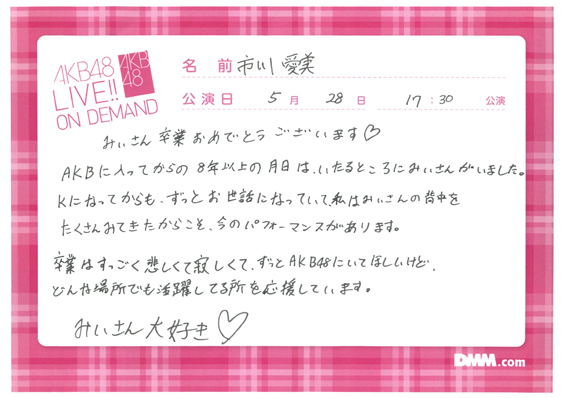 AKB48
LIVE!!
ON DEMAND
AKB
48
名 前 市川 愛美
公演日 5月 28日 17:30 公演
みぃさん卒業おめでとうございます♡
AKBに入ってからの8年以上の月日は、いたるところにみぃさんがいました。
Kになってからも、ずっとお世話になっていて私はみぃさんの背中を
たくさんみてきたからこそ、今のパフォーマンスがあります。
卒業はすっごく悲しくて寂しくて、ずっとAKB48にいてほしいけど、
どんな場所でも活躍してる所を応援しています。
みぃさん大好き♡
DMM.com